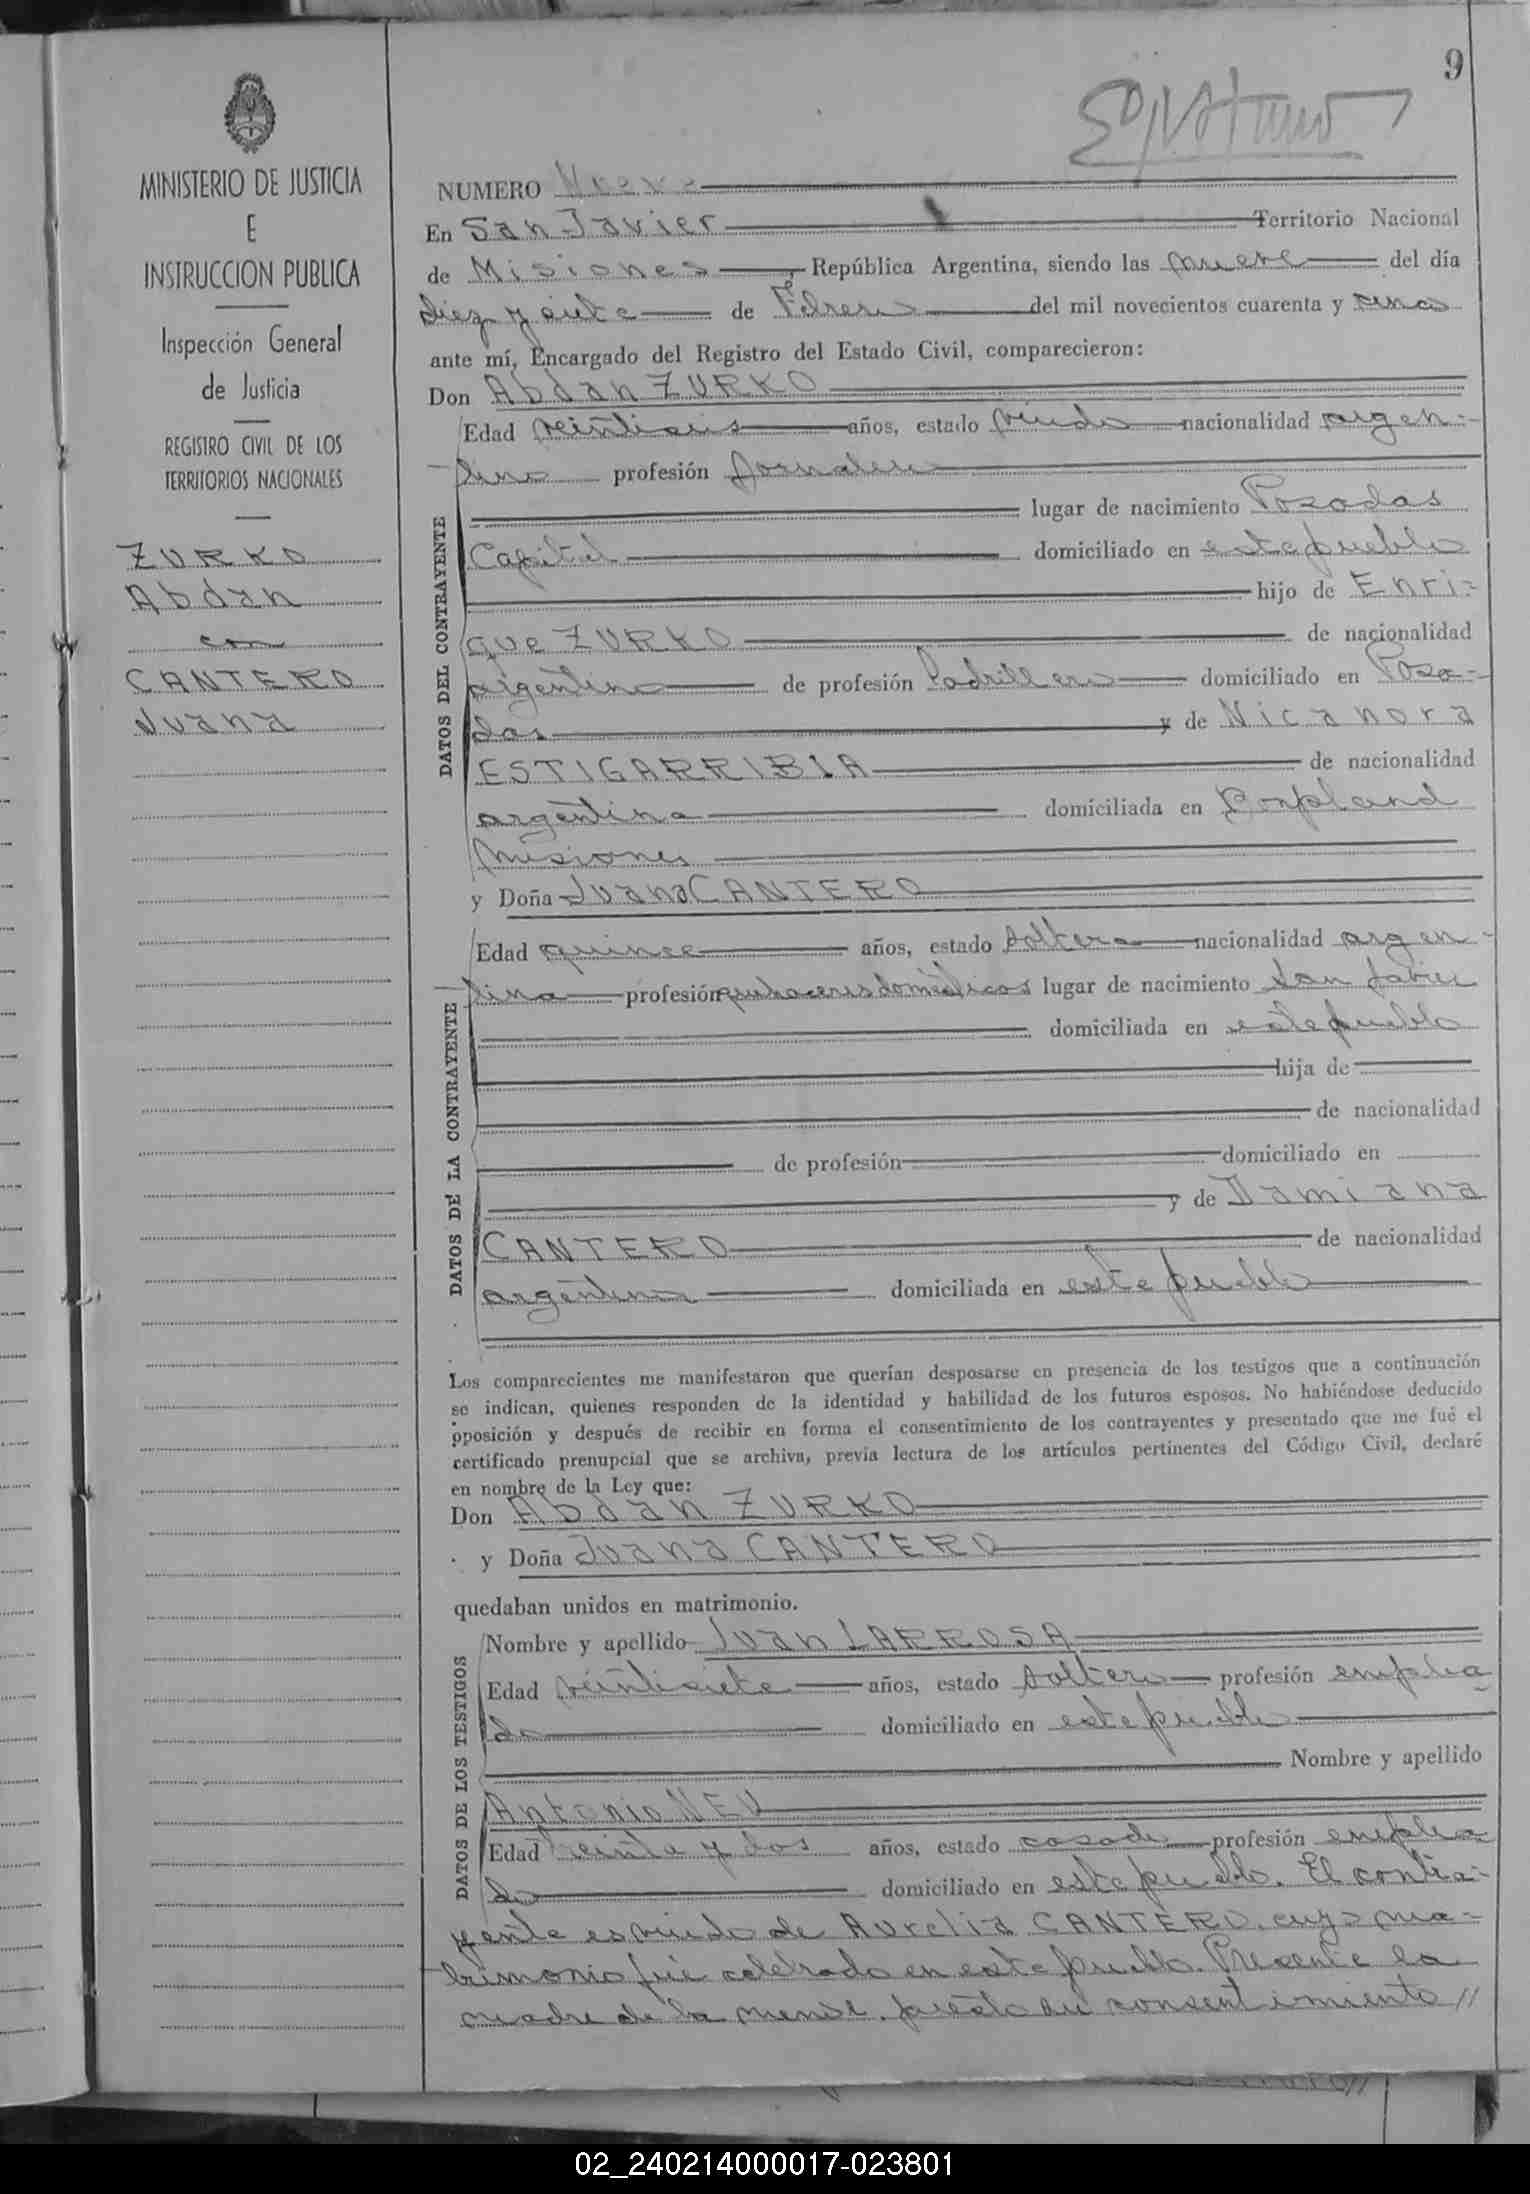 9
MINISTERIO DE JUSTICIA
E
INSTRUCCION PUBLICA
Inspección General
de Justicia
REGISTRO CIVIL DE LOS
TERRITORIOS NACIONALES
ZURKO
Abdan
con
CANTERO
Juana
NUMERO Nueve
En San Javier Territorio Nacional
de Misiones, República Argentina, siendo las nueve del día
diez y siete de Febrero del mil novecientos cuarenta y cinco
ante mí, Encargado del Registro del Estado Civil, comparecieron:
Don Abdan ZURKO
DATOS DEL CONTRAYENTE
Edad veintiseis años, estado viudo nacionalidad argen-
tino profesión Jornalero
lugar de nacimiento Posadas
Capital domiciliado en este pueblo
hijo de Enri-
que ZURKO de nacionalidad
argentino de profesión Ladrillero domiciliado en Posa-
das y de Nicanora
ESTIGARRIBIA de nacionalidad
argentina domiciliada en Bonpland
Misiones
y Doña Juana CANTERO
DATOS DE LA CONTRAYENTE
Edad quince años, estado soltera nacionalidad argen-
tina profesión quehaceres domésticos lugar de nacimiento San Javier
domiciliada en este pueblo
hija de
de nacionalidad
de profesión domiciliado en
y de Damiana
CANTERO de nacionalidad
argentina domiciliada en este pueblo
Los comparecientes me manifestaron que querían desposarse en presencia de los testigos que a continuación
se indican, quienes responden de la identidad y habilidad de los futuros esposos. No habiéndose deducido
oposición y después de recibir en forma el consentimiento de los contrayentes y presentado que me fué el
certificado prenupcial que se archiva, previa lectura de los artículos pertinentes del Código Civil, declaré
en nombre de la Ley que:
Don Abdan ZURKO
y Doña Juana CANTERO
quedaban unidos en matrimonio.
DATOS DE LOS TESTIGOS
Nombre y apellido Juan LARROSA
Edad veintisiete años, estado soltero profesión emplea
do domiciliado en este pueblo
Nombre y apellido
Antonio NEU
Edad treinta y dos años, estado casado profesión emplea
do domiciliado en este pueblo. El contra-
yente es viudo de Aurelia CANTERO, cuyo ma-
trimonio fué celebrado en este pueblo. Presente la
madre de la menor, prestó su consentimiento //
02_240214000017-023801